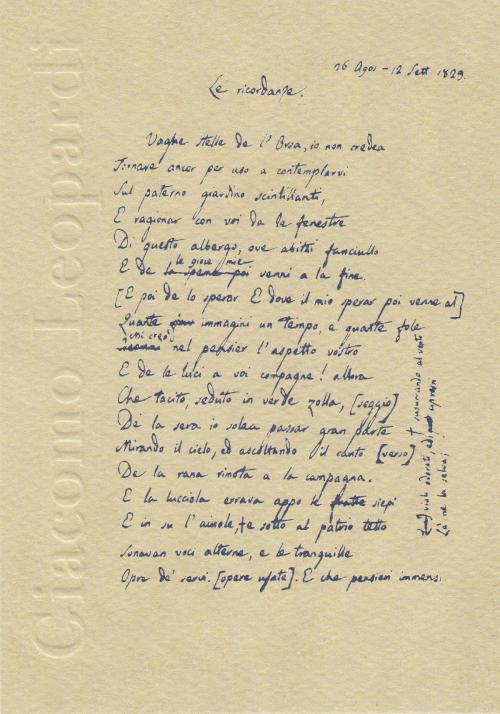 26 Agos – 12 Sett. 1829.
Le ricordanze.
Vaghe stelle de l'Orsa, io non credea
Tornare ancor per uso a contemplarvi
Sul paterno giardino scintillanti,
E ragionar con voi da le fenestre
Di questo albergo, ove abitai fanciullo
le gioie mie
E de la speme poi venni a la fine.
[E poi de lo sperar. E dove il mio sperar poi venne al]
Quante immagini un tempo, e quante fole
mi creò
nel pensier l'aspetto vostro
E de le luci a voi compagne! allora
Che tacito, seduto in verde zolla, [seggio]
De la sera io solea passar gran parte
Mirando il cielo, ed ascoltando il canto [verso]
De la rana rimota a la campagna.
E la lucciola errava appo le fratte siepi
E in su l'aiuole, † e sotto al patrio tetto
Sonavan voci alterne, e le tranquille
Opre de' servi. [opere usate]. E che pensieri immensi
† susurrando al vento
I viali odorati, ed i cipressi
Là ne la selva;
Giacomo Leopardi